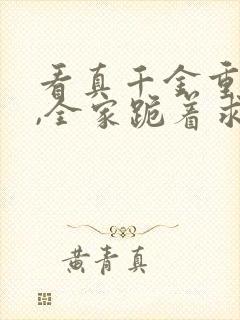 看真千金重
,全家跪着求
黄青真